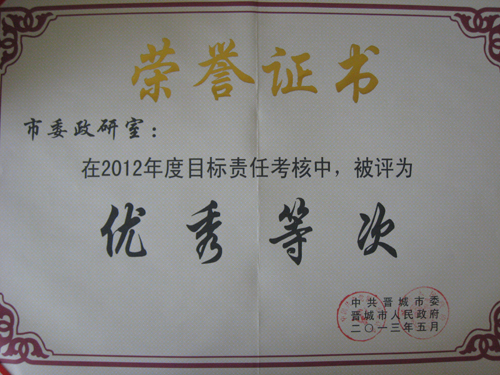 荣誉证书
市委政研室：
在2012年度目标责任考核中，被评为
优秀等次
中共晋城市委
晋城市人民政府
二〇一三年五月